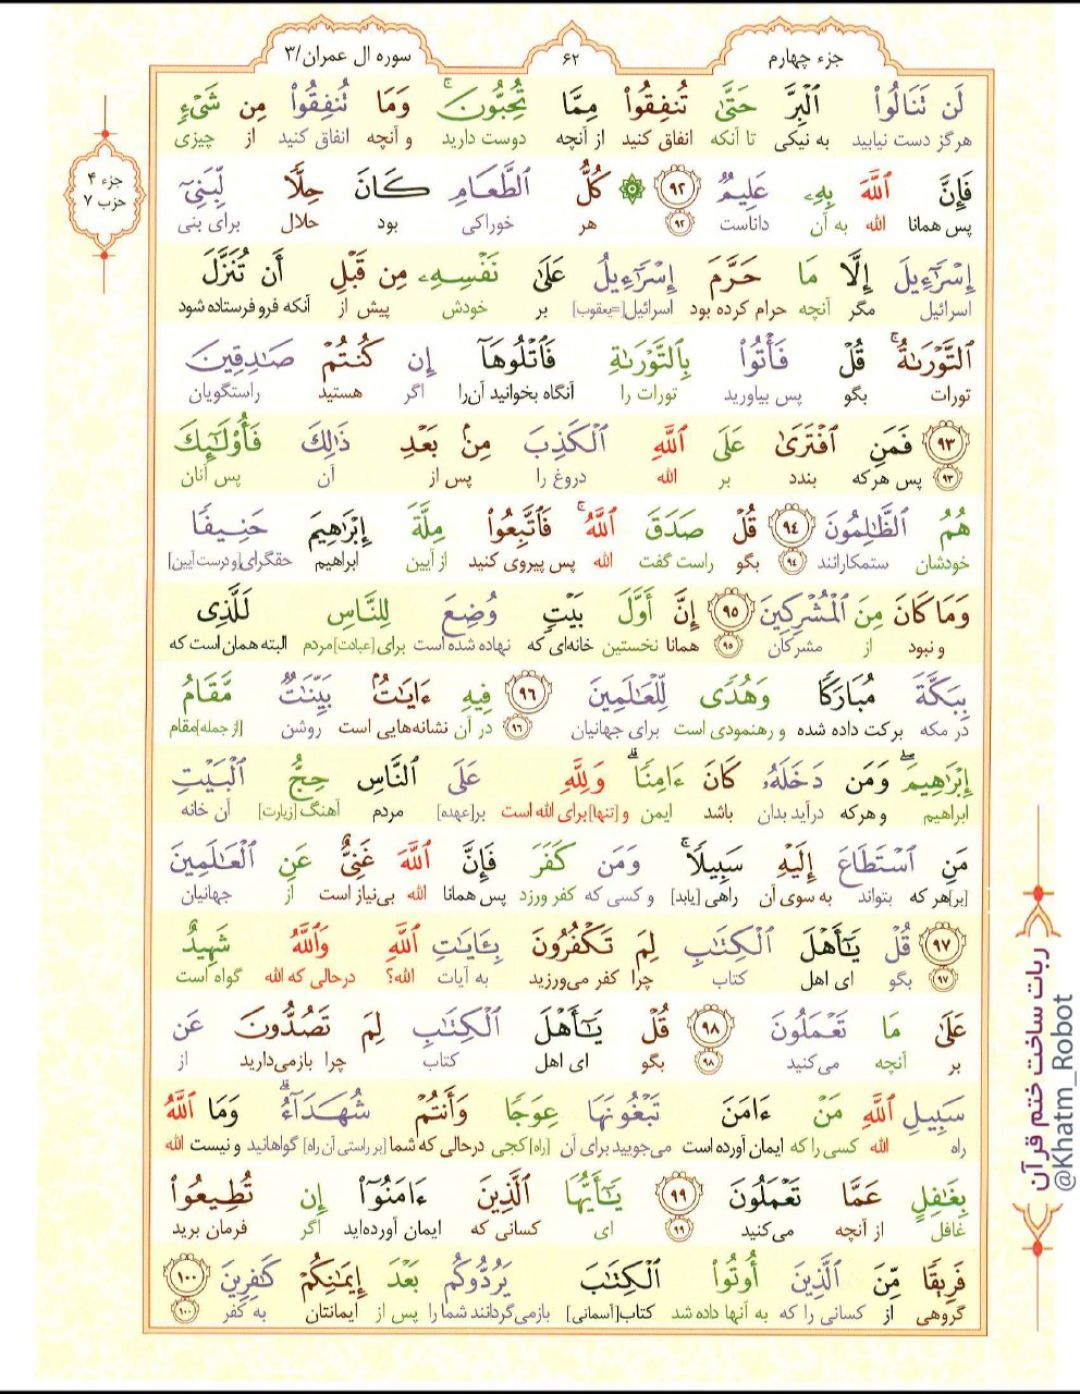 جزء چهارم
۶۲
سوره ال عمران/۳
لَن تَنَالُوا۟ ٱلْبِرَّ حَتَّىٰ تُنفِقُوا۟ مِمَّا تُحِبُّونَ ۚ وَمَا تُنفِقُوا۟ مِن شَىْءٍ
هرگز دست نیابید به نیکی تا آنکه انفاق کنید از آنچه دوست دارید و آنچه انفاق کنید از چیزی
جزء ۴
حزب ۷
فَإِنَّ ٱللَّهَ بِهِۦ عَلِيمٌ ۹۲ ۞ كُلُّ ٱلطَّعَامِ كَانَ حِلًّا لِّبَنِىٓ
پس همانا الله به آن داناست ۹۲ هر خوراکی بود حلال برای بنی
إِسْرَٰٓءِيلَ إِلَّا مَا حَرَّمَ إِسْرَٰٓءِيلُ عَلَىٰ نَفْسِهِۦ مِن قَبْلِ أَن تُنَزَّلَ
اسرائیل مگر آنچه حرام کرده بود اسرائیل[=یعقوب] بر خودش پیش از آنکه فرو فرستاده شود
ٱلتَّوْرَىٰةُ ۗ قُلْ فَأْتُوا۟ بِٱلتَّوْرَىٰةِ فَٱتْلُوهَآ إِن كُنتُمْ صَـٰدِقِينَ
تورات بگو پس بیاورید تورات را آنگاه بخوانید آن‌را اگر هستید راستگویان
۹۳ فَمَنِ ٱفْتَرَىٰ عَلَى ٱللَّهِ ٱلْكَذِبَ مِنۢ بَعْدِ ذَٰلِكَ فَأُو۟لَـٰٓئِكَ
۹۳ پس هرکه بندد بر الله دروغ را پس از آن پس آنان
هُمُ ٱلظَّـٰلِمُونَ ۹۴ قُلْ صَدَقَ ٱللَّهُ ۗ فَٱتَّبِعُوا۟ مِلَّةَ إِبْرَٰهِيمَ حَنِيفًا
خودشان ستمکارانند ۹۴ بگو راست گفت الله پس پیروی کنید از آیین ابراهیم حقگرای[و درست آیین]
وَمَا كَانَ مِنَ ٱلْمُشْرِكِينَ ۹۵ إِنَّ أَوَّلَ بَيْتٍ وُضِعَ لِلنَّاسِ لَلَّذِى
و نبود از مشرکان ۹۵ همانا نخستین خانه‌ای که نهاده شده است برای [عبادت]مردم البته همان است که
بِبَكَّةَ مُبَارَكًا وَهُدًى لِّلْعَـٰلَمِينَ ۹۶ فِيهِ ءَايَـٰتٌۢ بَيِّنَـٰتٌ مَّقَامُ
در مکه برکت داده شده و رهنمودی است برای جهانیان ۹۶ در آن نشانه‌هایی است روشن [از جمله]مقام
إِبْرَٰهِيمَ ۖ وَمَن دَخَلَهُۥ كَانَ ءَامِنًا ۗ وَلِلَّهِ عَلَى ٱلنَّاسِ حِجُّ ٱلْبَيْتِ
ابراهیم و هرکه درآید بدان باشد ایمن و [تنها]برای الله است بر[عهده] مردم آهنگ [زیارت] آن خانه
مَنِ ٱسْتَطَاعَ إِلَيْهِ سَبِيلًا ۚ وَمَن كَفَرَ فَإِنَّ ٱللَّهَ غَنِىٌّ عَنِ ٱلْعَـٰلَمِينَ
[بر]هر که بتواند به سوی آن راهی [یابد] و کسی که کفر ورزد پس همانا الله بی‌نیاز است از جهانیان
۹۷ قُلْ يَـٰٓأَهْلَ ٱلْكِتَـٰبِ لِمَ تَكْفُرُونَ بِـَٔايَـٰتِ ٱللَّهِ وَٱللَّهُ شَهِيدٌ
۹۷ بگو ای اهل کتاب چرا کفر می‌ورزید به آیات الله؟ درحالی که الله گواه است
عَلَىٰ مَا تَعْمَلُونَ ۹۸ قُلْ يَـٰٓأَهْلَ ٱلْكِتَـٰبِ لِمَ تَصُدُّونَ عَن
بر آنچه می‌کنید ۹۸ بگو ای اهل کتاب چرا بازمی‌دارید از
سَبِيلِ ٱللَّهِ مَنْ ءَامَنَ تَبْغُونَهَا عِوَجًا وَأَنتُمْ شُهَدَآءُ ۗ وَمَا ٱللَّهُ
راه الله کسی را که ایمان آورده است می‌جویید برای آن [راه]کجی درحالی که شما [بر راستی آن راه] گواهانید و نیست الله
بِغَـٰفِلٍ عَمَّا تَعْمَلُونَ ۹۹ يَـٰٓأَيُّهَا ٱلَّذِينَ ءَامَنُوٓا۟ إِن تُطِيعُوا۟
غافل از آنچه می‌کنید ۹۹ ای کسانی که ایمان آورده‌اید اگر فرمان برید
فَرِيقًا مِّنَ ٱلَّذِينَ أُوتُوا۟ ٱلْكِتَـٰبَ يَرُدُّوكُم بَعْدَ إِيمَـٰنِكُمْ كَـٰفِرِينَ ۱۰۰
گروهی از کسانی را که به آنها داده شد کتاب[آسمانی] بازمی‌گردانند شما را پس از ایمانتان به کفر ۱۰۰
ربات ساخت ختم قرآن
@Khatm_Robot